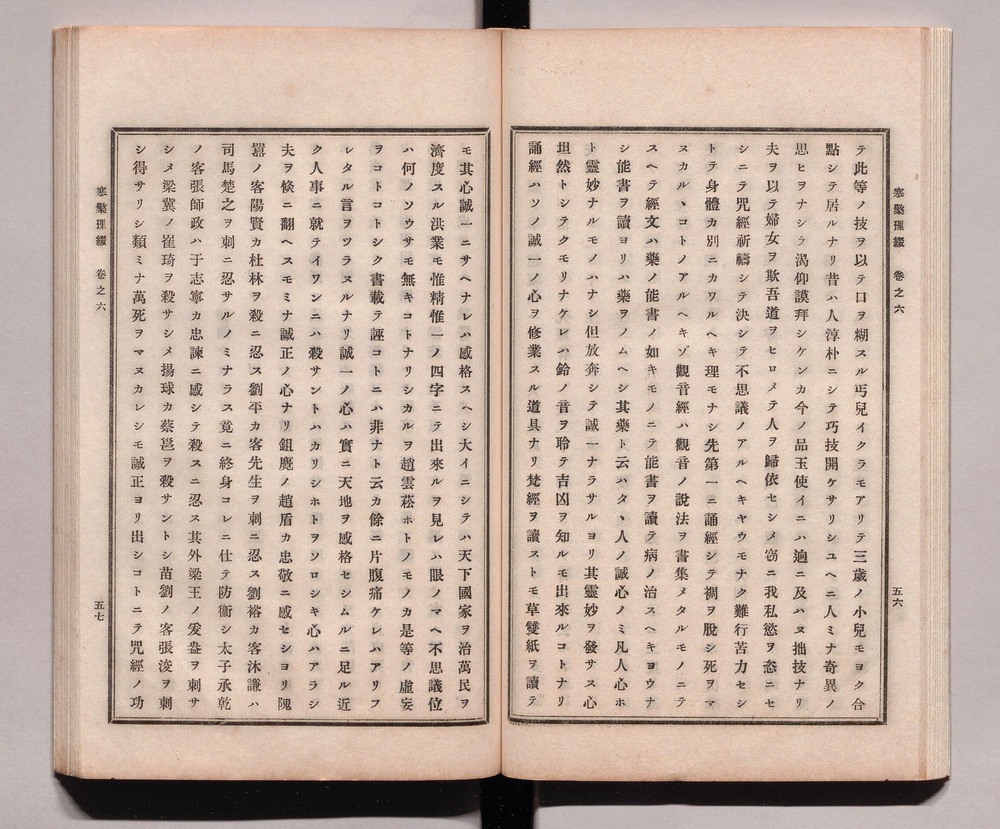 寒檠璅綴 卷之六 五六
テ此等ノ技ヲ以テ口ヲ糊スル丐兒イクラモアリテ三歲ノ小兒モヨク合
點シテ居ルナリ昔ハ人淳朴ニシテ巧技開ケサリシユヘニ人ミナ奇異ノ
思ヒヲナシテ渴仰謨拜シケンカ今ノ品玉使イニハ逈ニ及ハヌ拙技ナリ
夫ヲ以テ婦女ヲ欺吾道ヲヒロメテ人ヲ歸依セシメ窃ニ我私慾ヲ恣ニセ
シニテ咒經祈禱シテ決シテ不思議ノアルヘキヤウモナク難行苦力セシ
トテ身體カ別ニカワルヘキ理モナシ先第一ニ誦經シテ禍ヲ脫シ死ヲマ
ヌカルヽコトノアルヘキゾ觀音經ハ觀音ノ說法ヲ書集メタルモノニテ
スヘテ經文ハ藥ノ能書ノ如キモノニテ能書ヲ讀テ病ノ治スヘキヨウナ
シ能書ヲ讀ヨリハ藥ヲノムヘシ其藥ト云ハタヽ人ノ誠心ノミ凡人心ホ
ト靈妙ナルモノハナシ但放奔シテ誠一ナラサルヨリ其靈妙ヲ發サス心
坦然トシテクモリナケレハ鈴ノ音ヲ聆テ吉凶ヲ知ルモ出來ルコトナリ
誦經ハソノ誠一ノ心ヲ修業スル道具ナリ梵經ヲ讀ストモ草雙紙ヲ讀テ
モ其心誠一ニサヘナレハ感格スヘシ大イニシテハ天下國家ヲ治萬民ヲ
濟度スル洪業モ惟精惟一ノ四字ニテ出來ルヲ見レハ眼ノマヘ不思議位
ハ何ノソウサモ無キコトナリシカルヲ趙雲菘ホトノモノカ是等ノ虛妄
ヲコトコトシク書載テ誣コトニハ非ナト云カ餘ニ片腹痛ケレハアリフ
レタル言ヲツラヌルナリ誠一ノ心ハ實ニ天地ヲ感格セシムルニ足ル近
ク人事ニ就テイワンニハ殺サントハカリシホトヲソロシキ心ハアラシ
夫ヲ倏ニ翻ヘスモミナ誠正ノ心ナリ鉏麑ノ趙盾カ忠敬ニ感セシヨリ隗
囂ノ客陽賢カ杜林ヲ殺ニ忍ス劉平カ客先生ヲ刺ニ忍ス劉裕カ客沐謙ハ
司馬楚之ヲ刺ニ忍サルノミナラス竟ニ終身コレニ仕テ防衞シ太子承乾
ノ客張師政ハ于志寧カ忠諫ニ感シテ殺スニ忍ス其外梁王ノ爰盎ヲ刺サ
シメ梁冀ノ崔琦ヲ殺サシメ揚球カ蔡邕ヲ殺サントシ苗劉ノ客張浚ヲ刺
シ得サリシ類ミナ萬死ヲマヌカレシモ誠正ヨリ出シコトニテ咒經ノ功
寒檠璅綴 卷之六 五七